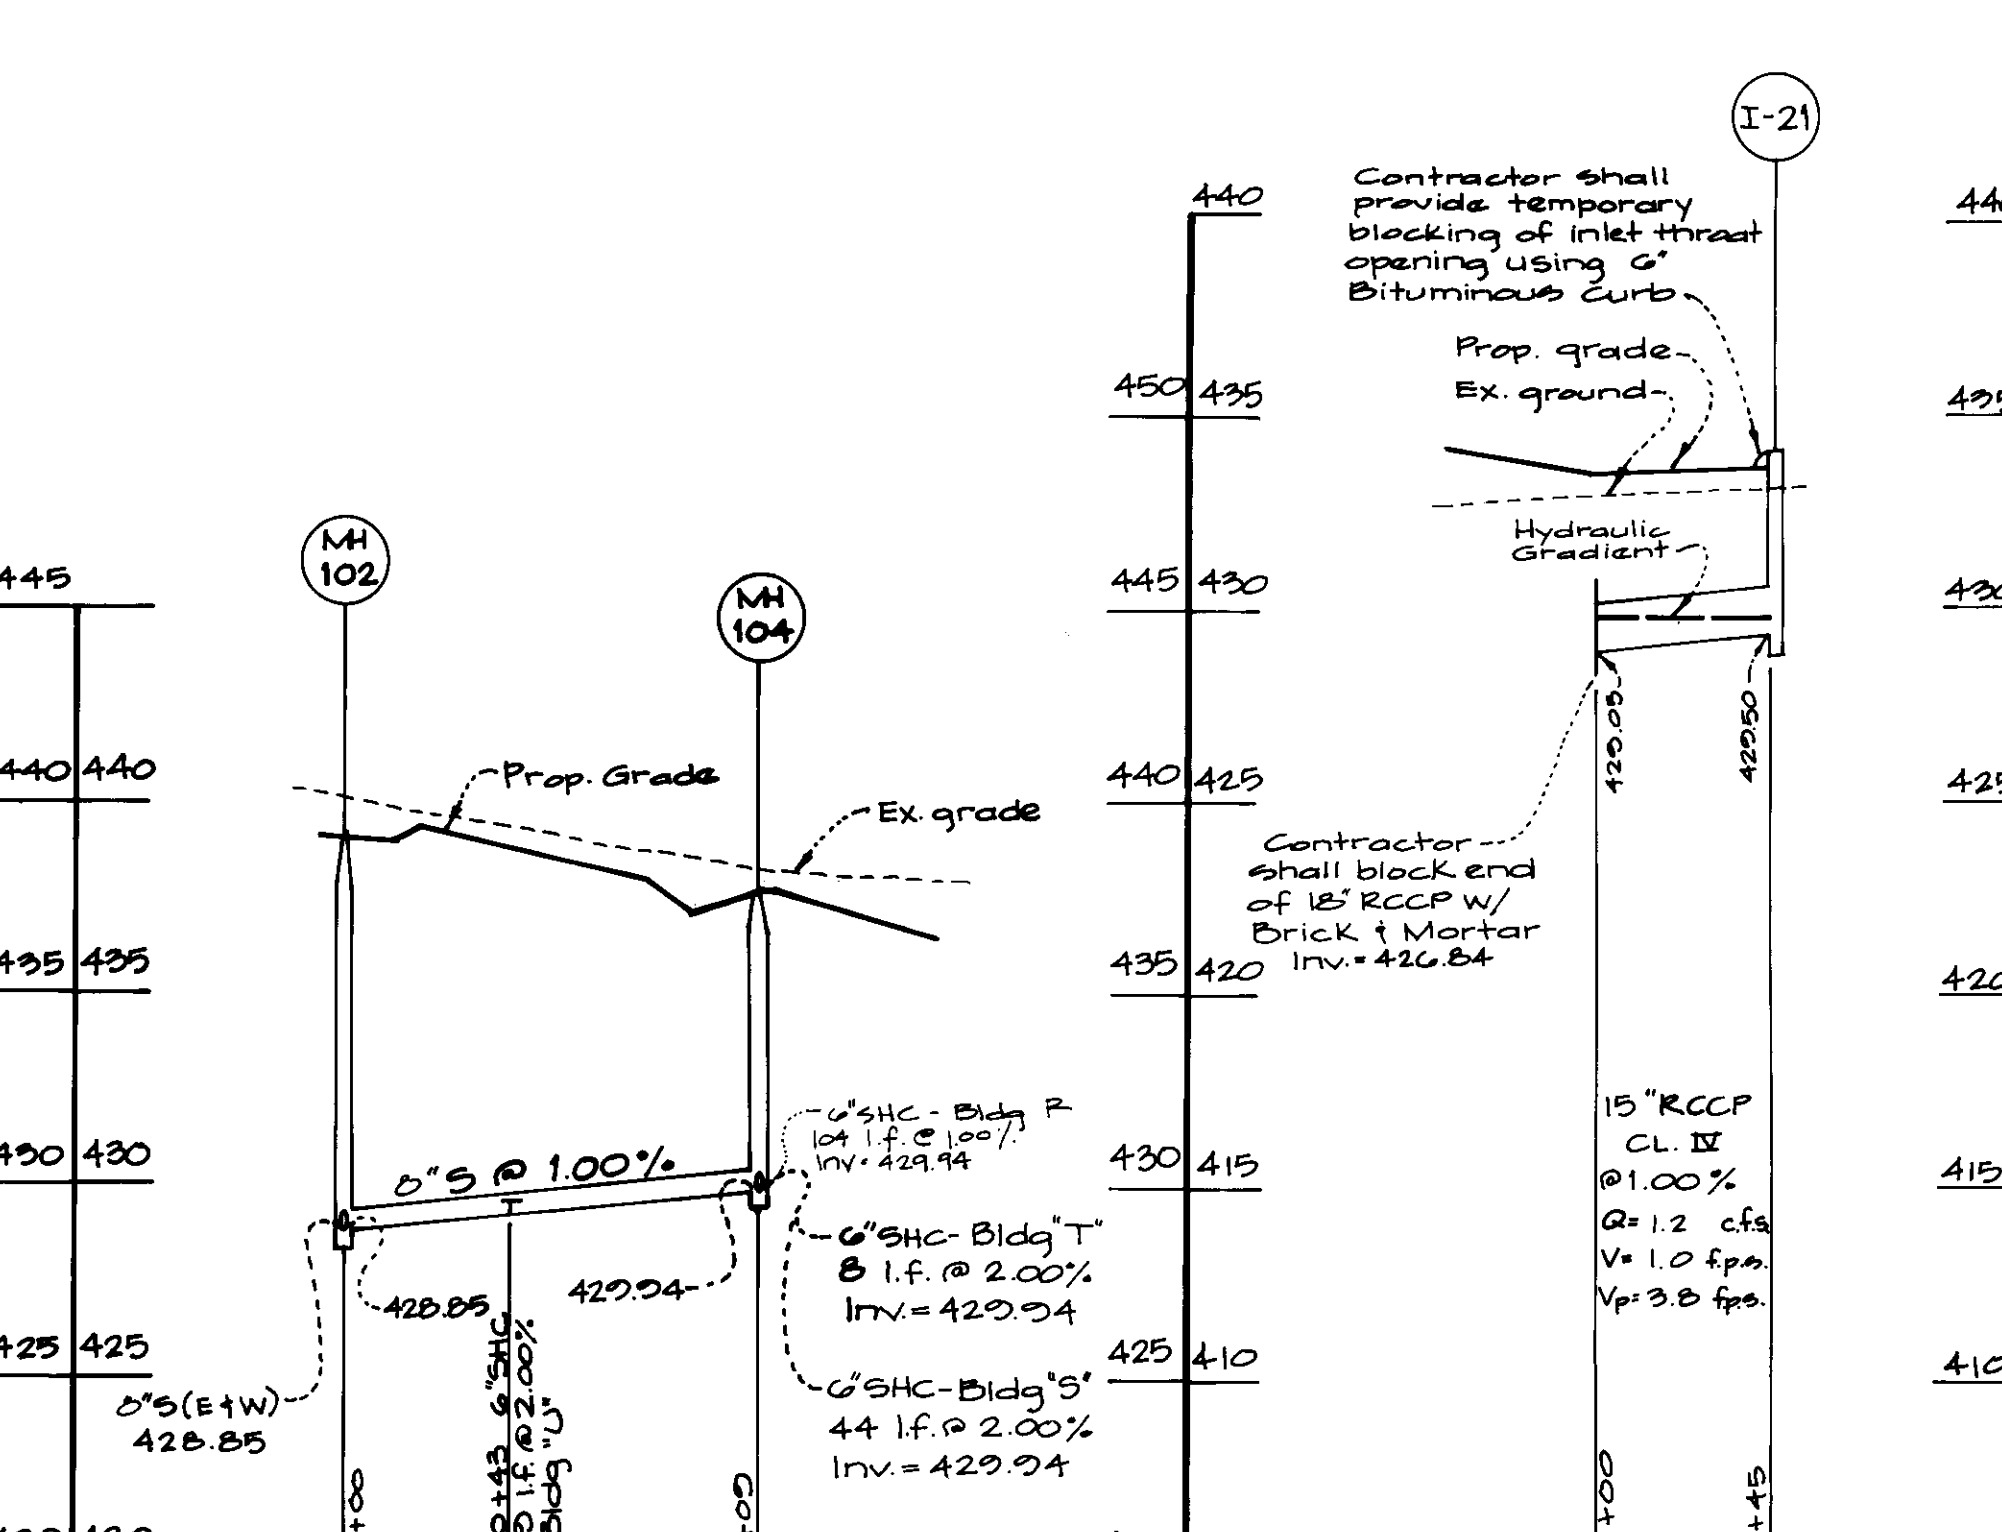 I-21
Contractor shall
provide temporary
blocking of inlet throat
opening using 6"
Bituminous Curb
Prop. grade
Ex. ground
Hydraulic
Gradient
429.05
429.50
Contractor
shall block end
of 18" RCCP W/
Brick & Mortar
Inv.= 426.84
15" RCCP
CL. IV
@ 1.00%
Q= 1.2 c.f.s.
V= 1.0 f.p.s.
Vp= 3.8 fps.
+00
+45
440
450 435
445 430
440 425
435 420
430 415
425 410
435
430
425
415
410
445
440 440
435 435
430 430
425 425
MH
102
MH
104
Prop. Grade
Ex. grade
8"S @ 1.00%
6"SHC - Bldg R
104 l.f. @ 1.00%
Inv. 429.94
6"SHC- Bldg "T"
8 l.f. @ 2.00%
Inv.= 429.94
6"SHC-Bldg "S"
44 l.f. @ 2.00%
Inv. = 429.94
429.94
428.85
8"S (E & W)
428.85
0+43 6"SHC
l.f. @ 2.00%
Bldg "U"
+00
+09